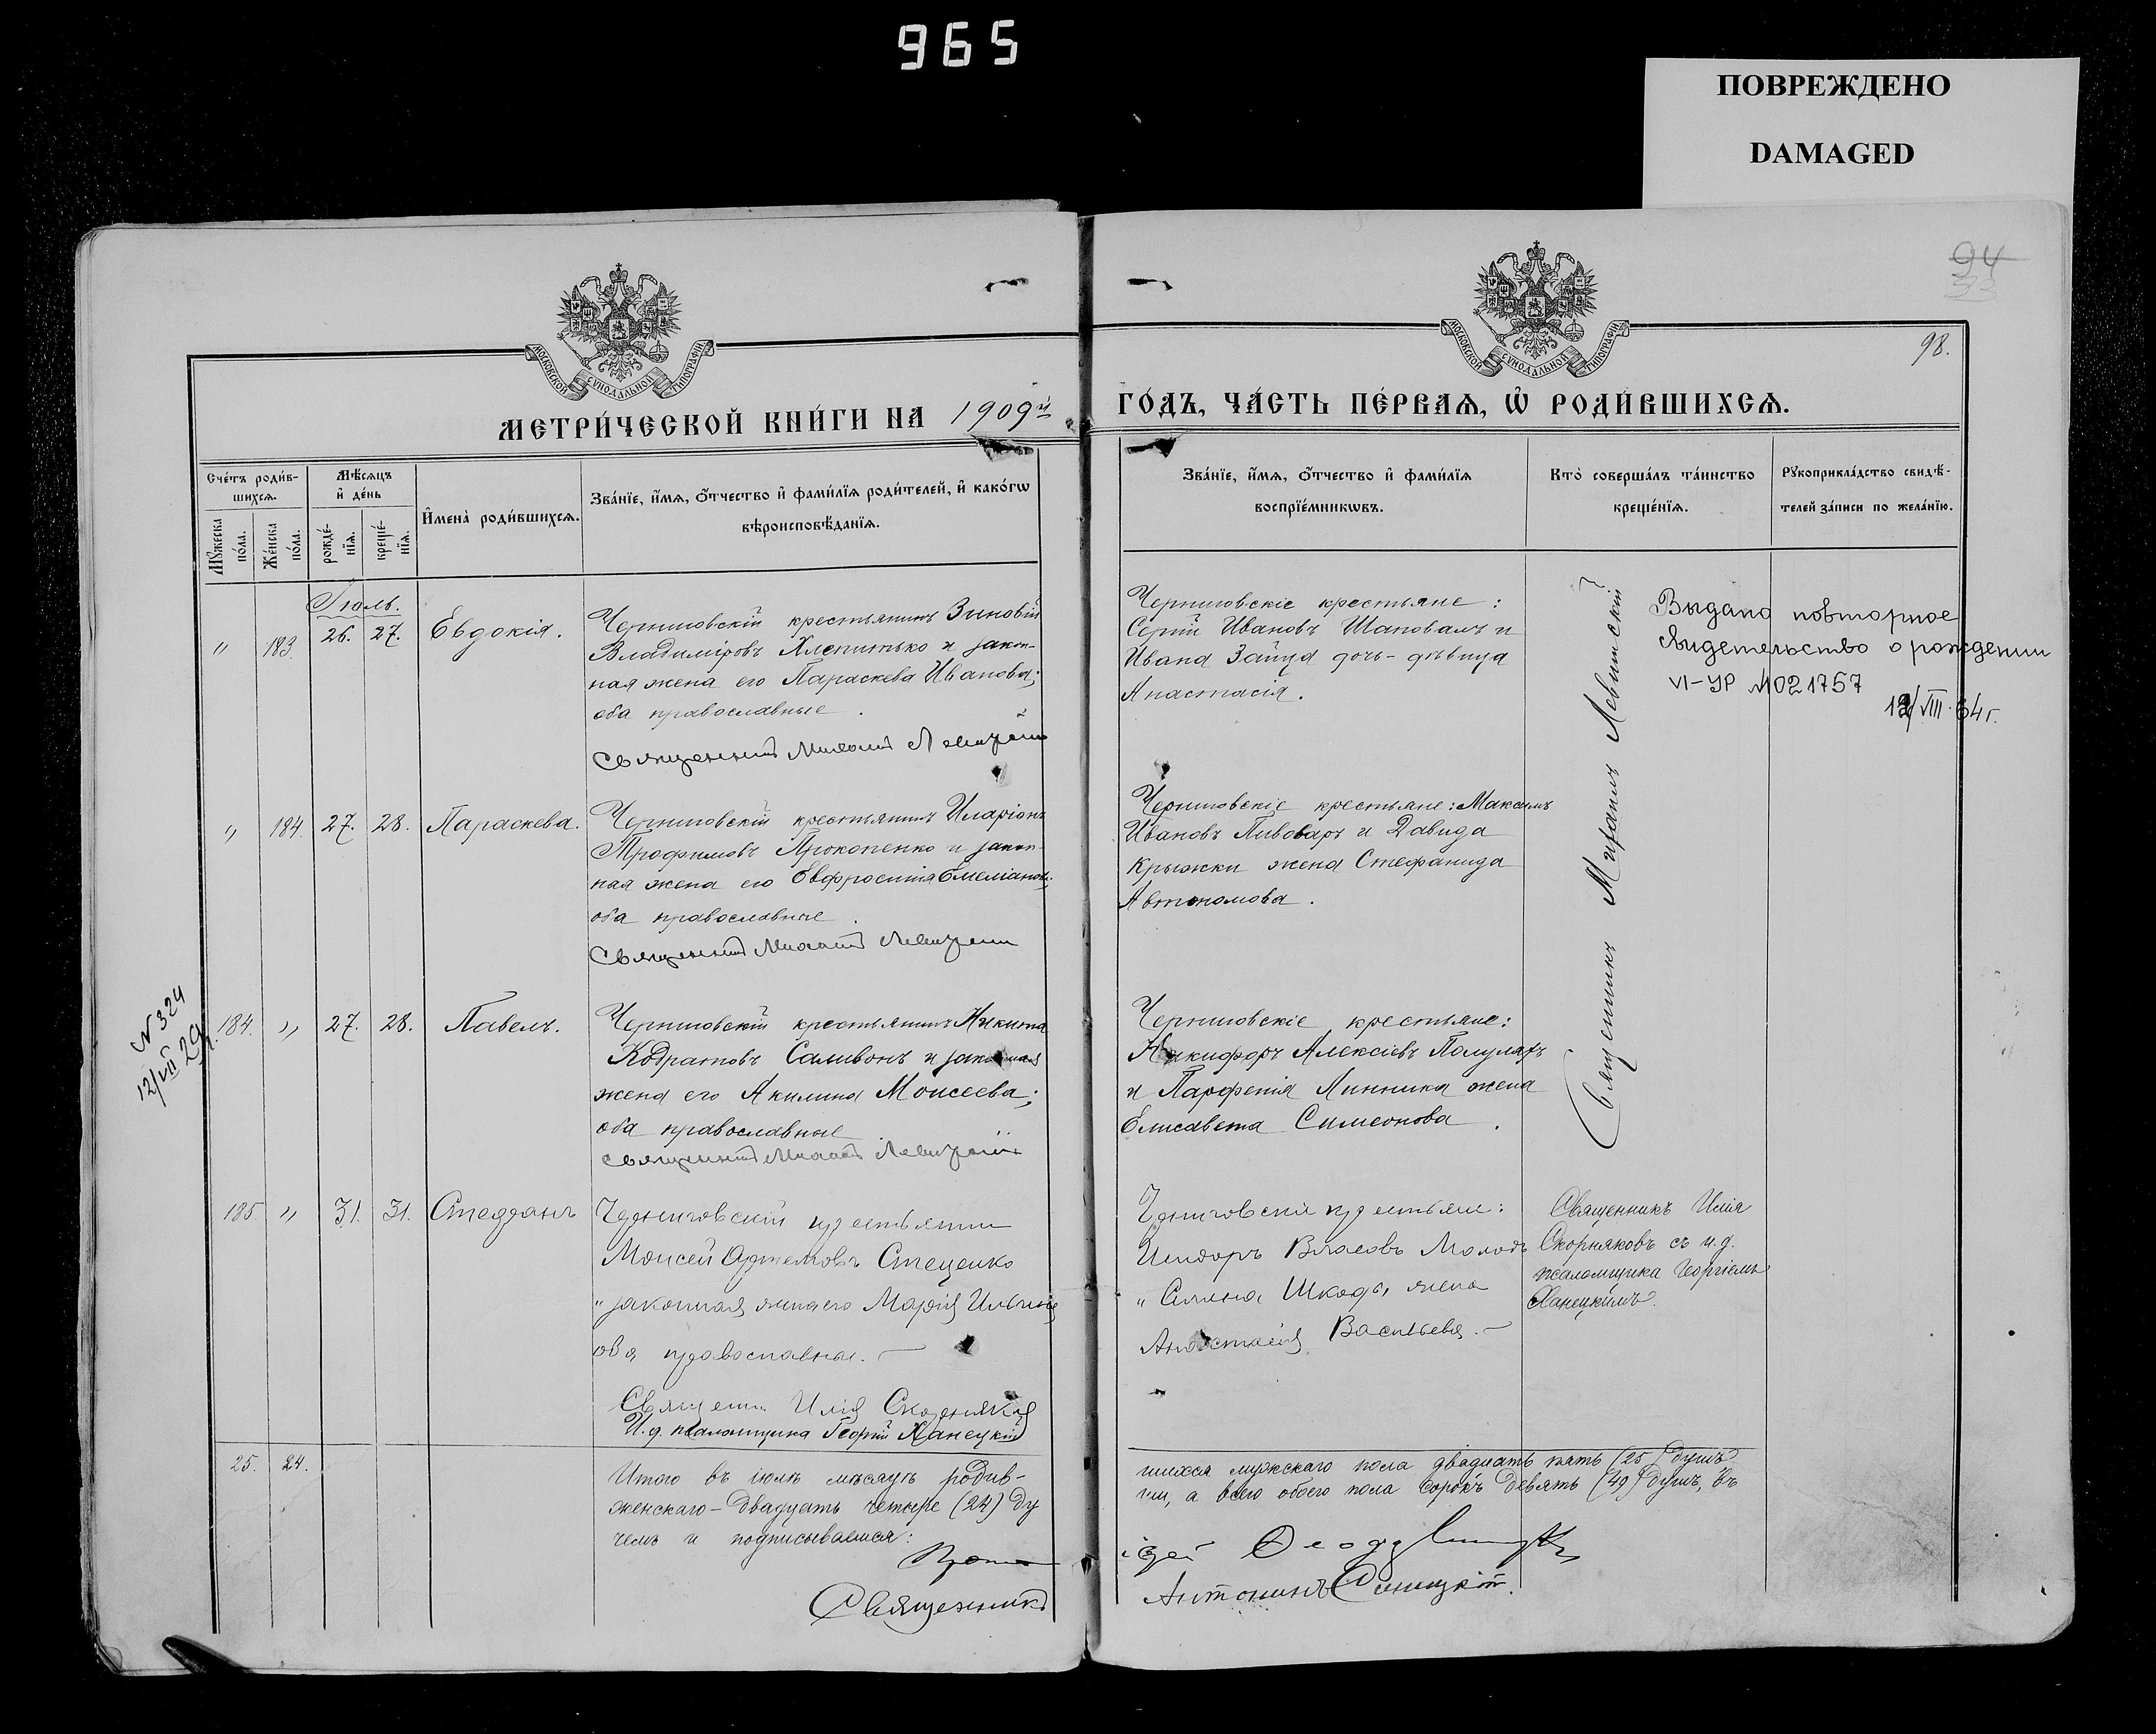 965
ПОВРЕЖДЕНО
DAMAGED
94
98.
МОСКОВСКОЙ СѴНОДАЛЬНОЙ ТИПОГРАФІИ
МОСКОВСКОЙ СѴНОДАЛЬНОЙ ТИПОГРАФІИ
МЕТРИ́ЧЕСКОЙ КНИ́ГИ НА 1909й ГО́ДЪ, ЧА́СТЬ ПЕ́РВАѦ, Ѡ РОДИ́ВШИХСѦ.
Сче́тъ роди́в-
шихсѧ.
Мꙋ́жеска по́ла.
Же́нска по́ла.
Мѣ́сѧцъ
и҆ де́нь
рожде́-
нїѧ.
креще́-
нїѧ.
И҆мена̀ роди́вшихсѧ.
Зва́нїе, и҆́мѧ, ѻ҆́тчество и҆ фами́лїѧ роди́телей, и҆ како́гѡ
вѣроисповѣ́данїѧ.
Зва́нїе, и҆́мѧ, ѻ҆́тчество и҆ фами́лїѧ
воспрїе́мникѡвъ.
Кто̀ соверша́лъ та́инство
креще́нїѧ.
Рꙋкоприкла́дство свидѣ́-
телей за́писи по жела́нїю.
Іюль.
" 183. 26. 27. Евдокія.
Черниговскій крестьянинъ Зиновій
Владиміровъ Хлепитько и закон-
ная жена его Параскева Иванова;
оба православные.
Священникъ Михаилъ Левитскій
Черниговскіе крестьяне:
Сергій Ивановъ Шаповалъ и
Ивана Зайца дочь-дѣвица
Анастасія.
Священникъ Михаилъ Левитскій
Выдано повторное
свидетельство о рождении
VI-УР №021757
12/VIII.64г.
" 184. 27. 28. Параскева.
Черниговскій крестьянинъ Иларіонъ
Трофимовъ Прокопенко и закон-
ная жена его Евфросинія Емеліанова;
оба православные.
Священникъ Михаилъ Левитскій
Черниговскіе крестьяне: Максимъ
Ивановъ Пивоваръ и Давида
Крыжки жена Стефанида
Автономова.
N 324
12/VII 29г.
184. " 27. 28. Павелъ.
Черниговскій крестьянинъ Никита
Кодратовъ Саливонъ и законная
жена его Акилина Моисеева;
оба православные
Священникъ Михаилъ Левитскій
Черниговскіе крестьяне:
Никифоръ Алексіевъ Полуляхъ
и Парфенія Линника жена
Елисавета Симеонова.
185. " 31. 31. Стефанъ
Черниговскій крестьянинъ
Моисей Артемовъ Стеценко
и законная жена его Марія Ильина
оба православные.
Священ. Илія Скорняковъ
И. д. псаломщика Георгій Ханецкій
Черниговскіе крестьяне:
Исидоръ Власовъ Молодъ
и Шкоды, жена
Анастасія Васильева.
Священникъ Илія
Скорняковъ съ и.д.
псаломщика Георгіемъ
Ханецкимъ.
25. 24.
Итого въ іюлѣ мѣсяцѣ родив-
шихся мужскаго пола двадцать пять (25) душъ
женскаго – двадцать четыре (24) ду
ши, а всего обоего пола сорокъ девять (49) душъ, въ
чемъ и подписываемся:
Священникъ Антонинъ Синицкій.